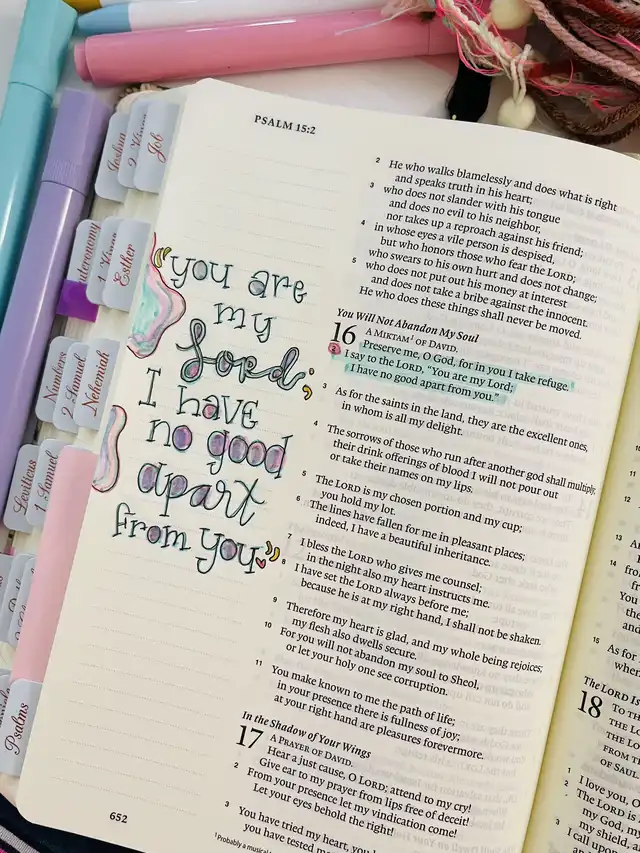 Joshua
2 Kings
Job
uteronomy
1 Kings
Esther
Numbers
2 Samuel
Nehemiah
Leviticus
1 Samuel
Psalms
PSALM 15:2
"you are
my
Lord;
I have
no good
apart
from you."
652
2 He who walks blamelessly and does what is right
and speaks truth in his heart;
3 who does not slander with his tongue
and does no evil to his neighbor,
nor takes up a reproach against his friend;
4 in whose eyes a vile person is despised,
but who honors those who fear the LORD;
who swears to his own hurt and does not change;
5 who does not put out his money at interest
and does not take a bribe against the innocent.
He who does these things shall never be moved.
You Will Not Abandon My Soul
16 A MIKTAM1 OF DAVID.
Preserve me, O God, for in you I take refuge.
2 I say to the LORD, "You are my Lord;
I have no good apart from you."
3 As for the saints in the land, they are the excellent ones,
in whom is all my delight.
4 The sorrows of those who run after another god shall multiply;
their drink offerings of blood I will not pour out
or take their names on my lips.
5 The LORD is my chosen portion and my cup;
you hold my lot.
6 The lines have fallen for me in pleasant places;
indeed, I have a beautiful inheritance.
7 I bless the LORD who gives me counsel;
in the night also my heart instructs me.
8 I have set the LORD always before me;
because he is at my right hand, I shall not be shaken.
9 Therefore my heart is glad, and my whole being rejoices;
my flesh also dwells secure.
10 For you will not abandon my soul to Sheol,
or let your holy one see corruption.
11 You make known to me the path of life;
in your presence there is fullness of joy;
at your right hand are pleasures forevermore.
In the Shadow of Your Wings
17 A PRAYER OF DAVID.
Hear a just cause, O LORD; attend to my cry!
Give ear to my prayer from lips free of deceit!
2 From your presence let my vindication come!
Let your eyes behold the right!
3 You have tried my heart, you
you have tested
1 Probably a musical
14 from
You
and
15 As for
when
The LORD Is
18 TO TH
THE LO
THE LO
FROM T
OF SAUL
1 I love you, O
2 The LORD is
my God, m
my shield, a
3 I call upon